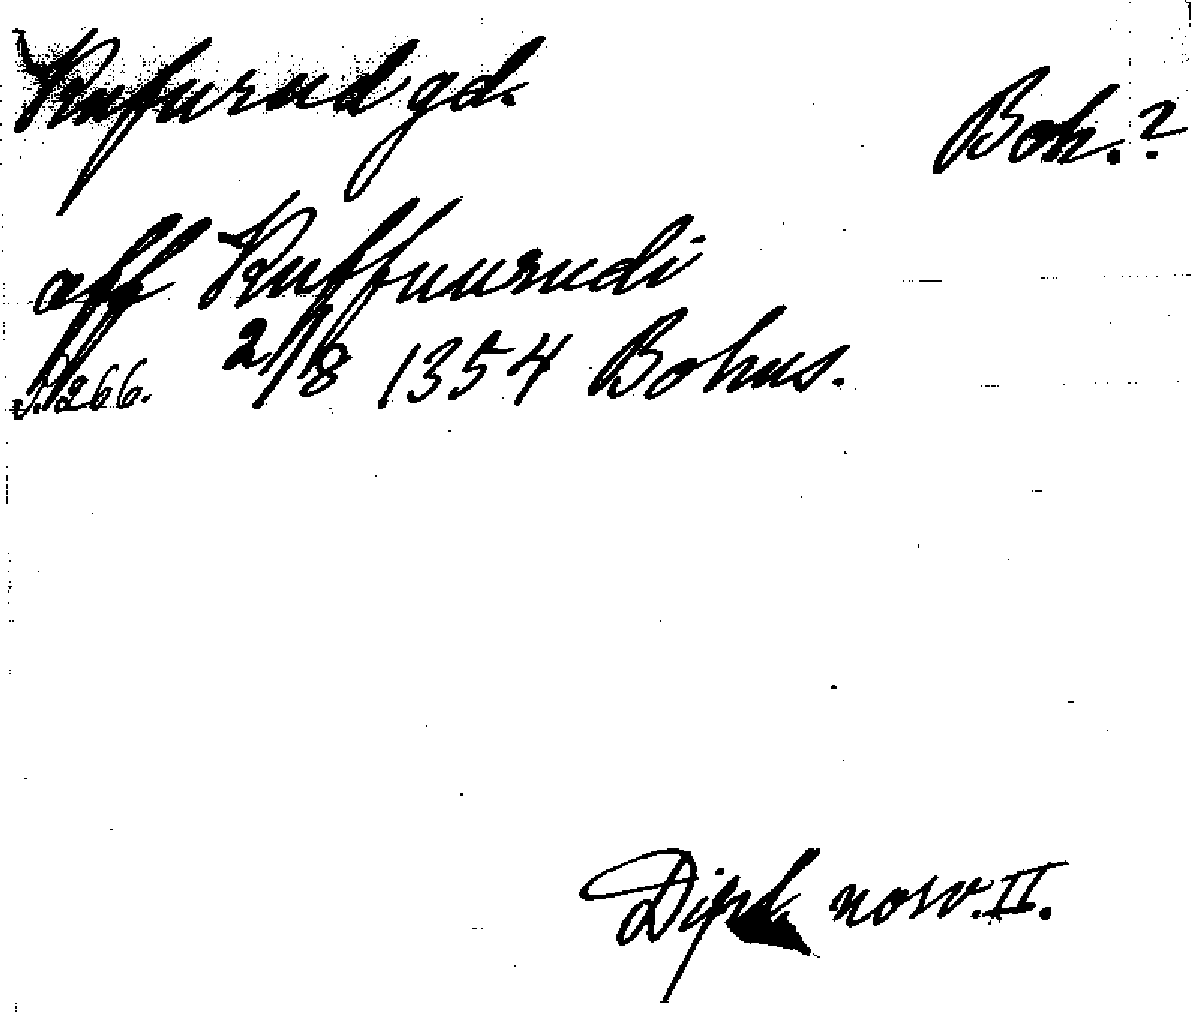 Kufurud gd. Boh.?
aff Kuffuurudi
s. 266. 21/8 1354 Bohus.
Dipl. norv. II.